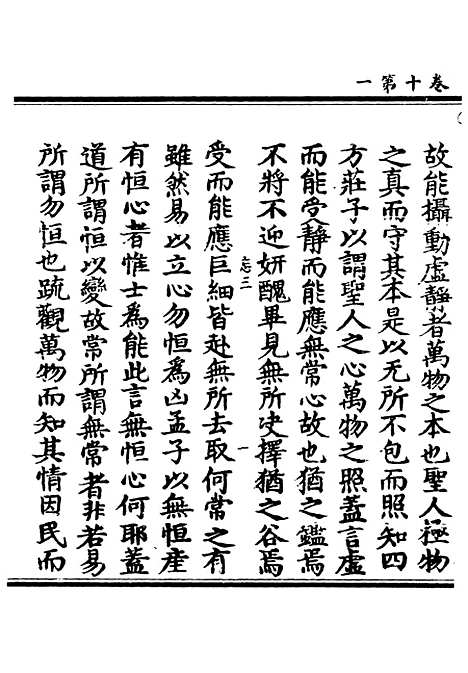 卷十第一
故能攝動虛靜者萬物之本也聖人極物
之真而守其本是以无所不包而照知四
方莊子以謂聖人之心萬物之照蓋言虛
而能受靜而能應無常心故也猶之鑑焉
不將不迎妍醜畢見無所決擇猶之谷焉
忘三
一
受而能應巨細皆赴無所去取何常之有
雖然易以立心勿恒為凶孟子以無恒産
有恒心者惟士為能此言無恒心何耶蓋
道所謂恒以變故常所謂無常者非若易
所謂勿恒也䟽觀萬物而知其情因民而